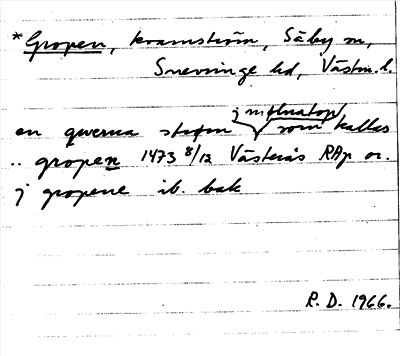 *Gropen, kvarnström, Säby sn,
Snevringe hd, Västm. l.
j mølnatorp
en qwerna strøm som kallas
.. gropen 1473 8/12 Västerås RAp or.
j gropene ib. bak
R. D. 1966.